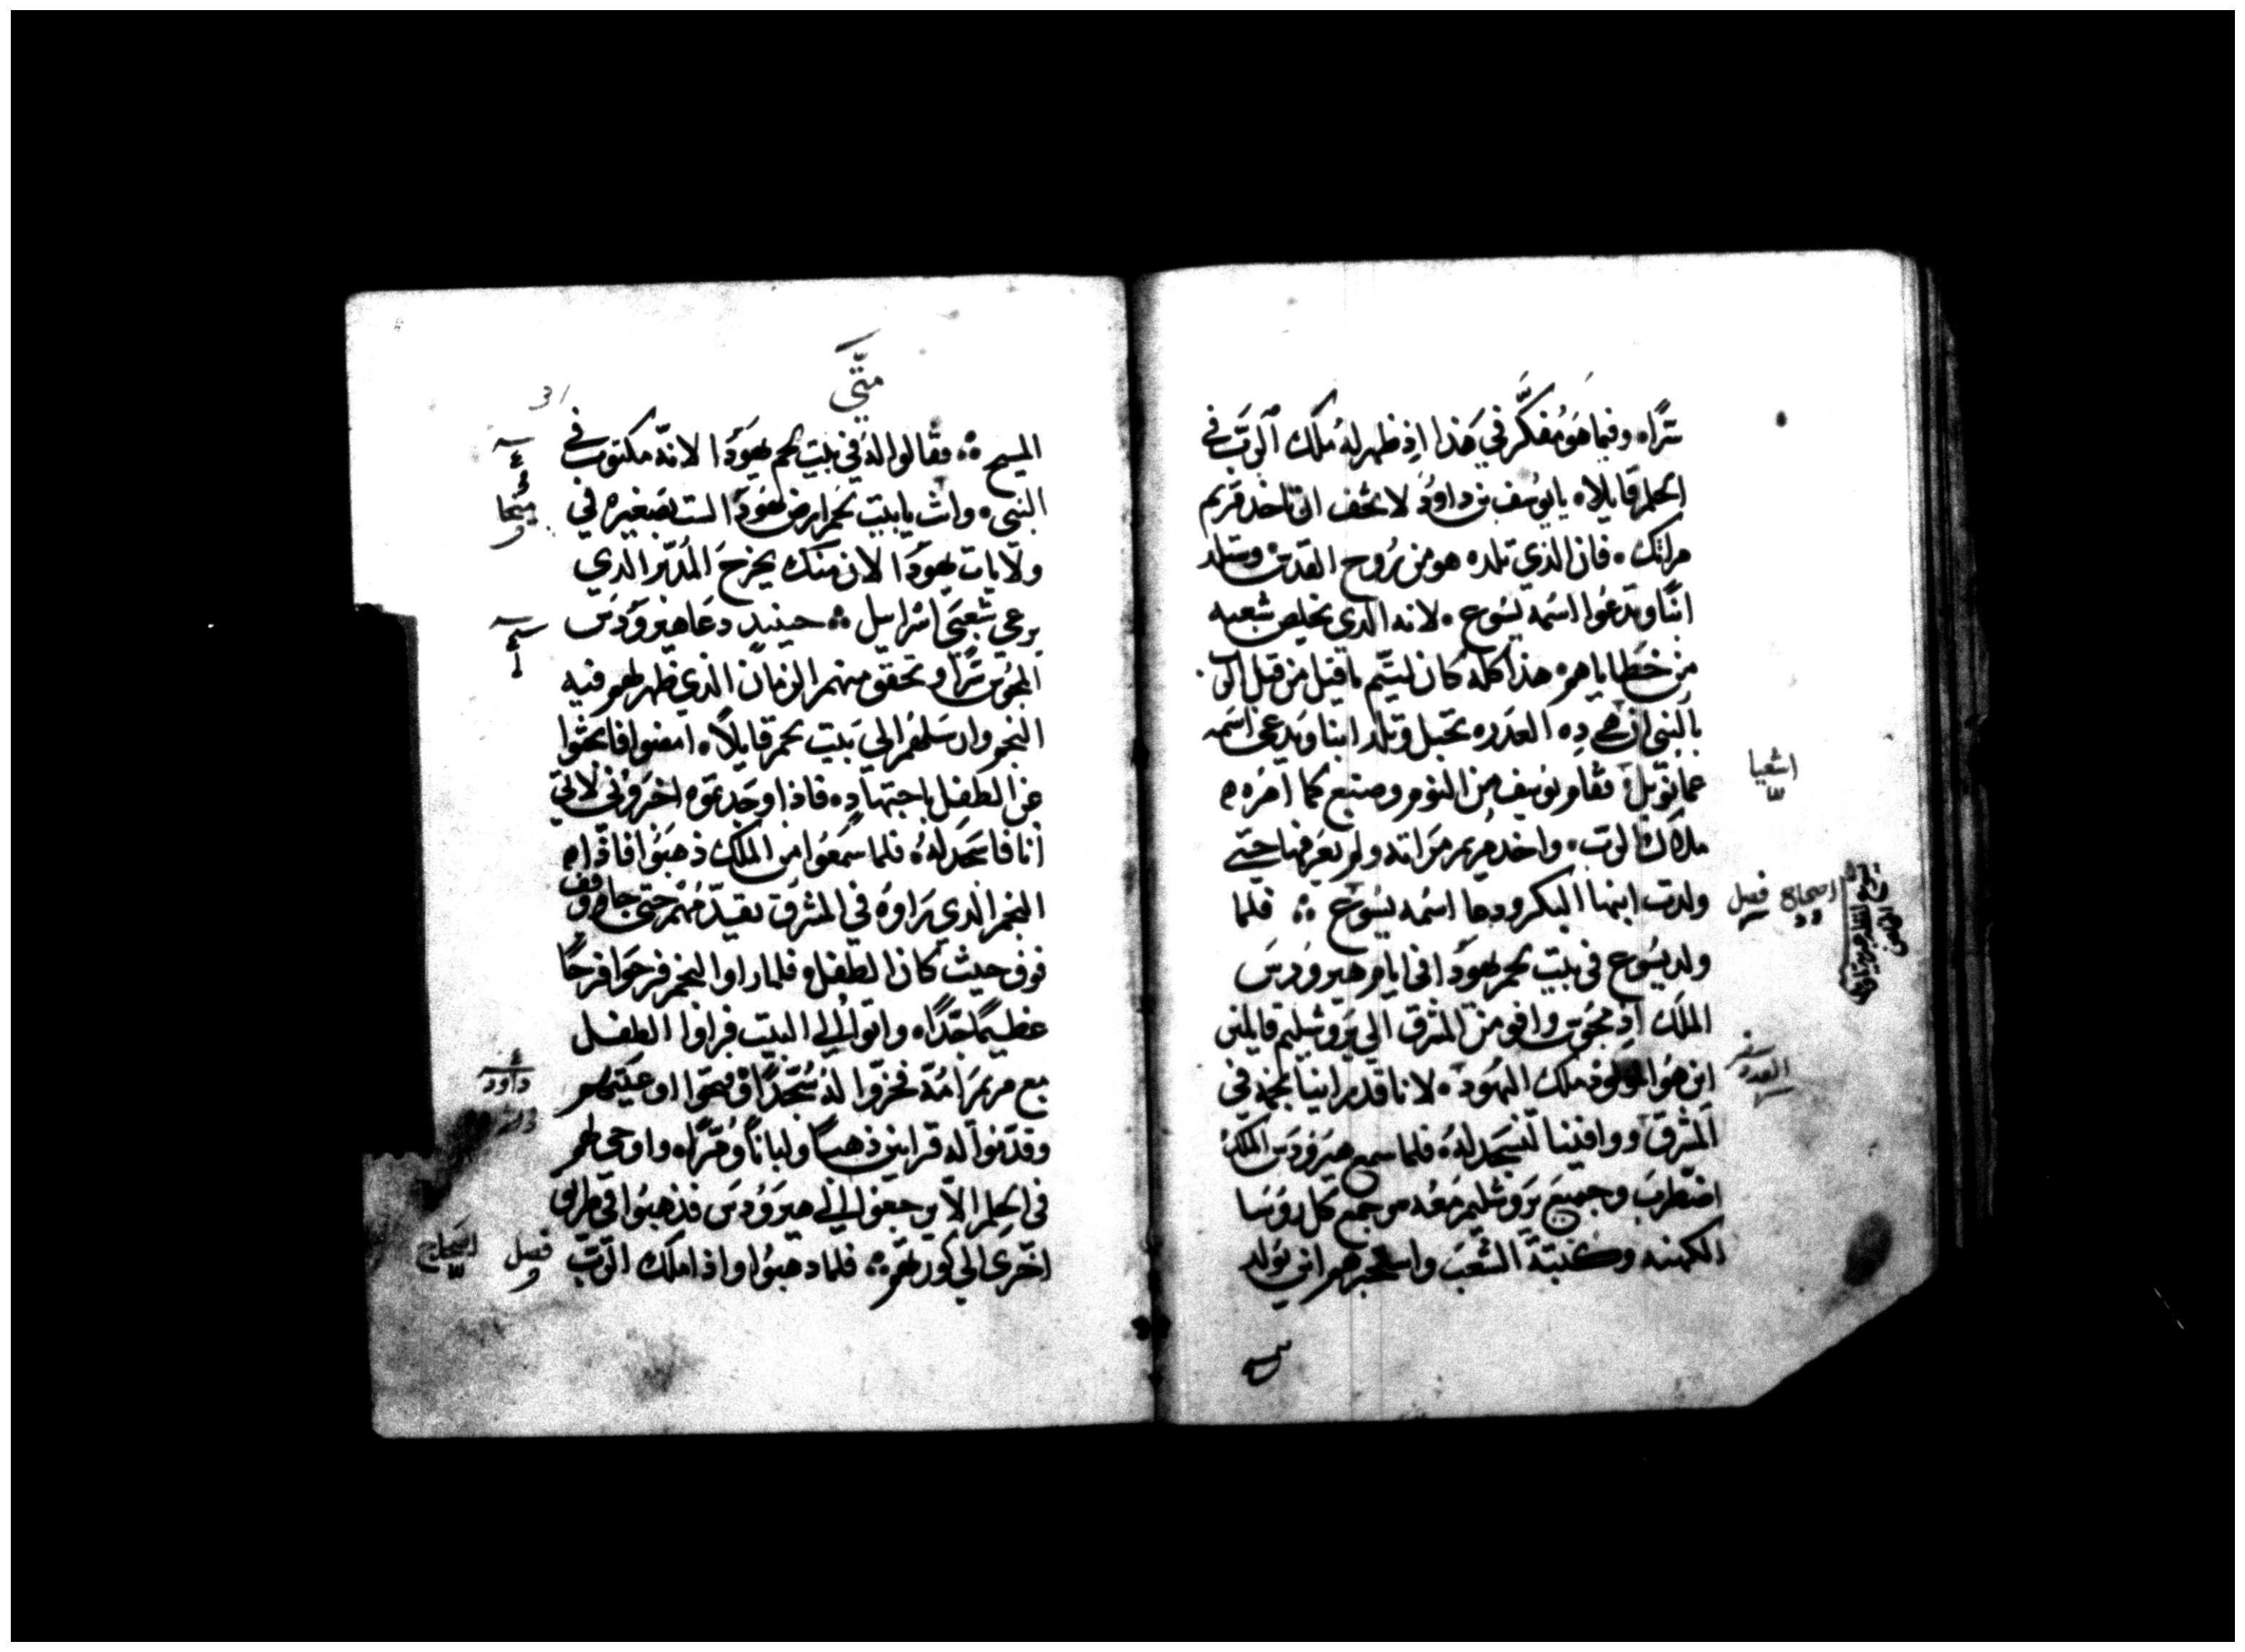 سرًا ٥ وفيما هو مفكر في هذا اذ ظهر له ملك الرب في
الحلم قايلا ٥ يا يوسف بن داوود لا تخف ان تاخد مريم
مراتك ٥ فان الذي تلده هو من روح القدس وستلد
ابنًا وتدعوا اسمه يسوع ٥ لانه الدي يخلص شعبه
من خطاياهم ٥ هذا كله كان ليتم ما قيل من قبل الرب
بالنبي ان هده العدره تحبل وتلد ابنا ويدعى اسمه
عمانويل فقام يوسف من النوم وصنع كما امره
ملاك الرب ٥ واخد مريم مراته ولم يعرفها حتى
ولدت ابنها البكر ودعا اسمه يسوع ∴ فلما
ولد يسوع في بيت لحم يهودا في ايام هيرودس
الملك اذ مجوس وافو من المشرق الي يروشليم قايلين
اين هو المولود ملك اليهود ٥ لاننا قد راينا نجمه في
المشرق ووافينا لنسجد له ٥ فلما سمع هيرودس الملك
اضطرب وجميع يروشليم معه جمع كل روسا
الكهنه وكتبة الشعب واستخبرهم اين يولد
اشعيا
اصحاح فصل
متى
31
المسيح ∴ فقالوا له في بيت لحم يهودا لانه مكتوب في
النبي ٥ وانت يا بيت لحم ارض يهودا لست بصغيره في
ولايات يهودا لان منك يخرج المدبر الدي
يرعى شعبي اسراييل ∴ حينيد دعا هيرودس
المجوس سرًا وتحقق منهم الزمان الذي ظهر لهم فيه
النجم وارسلهم الى بيت لحم قايلا ٥ امضوا فابحثوا
عن الطفل باجتهاد ٥ فاذا وجدتموه اخبروني لاتي
انا فاسجد له ٥ فلما سمعوا من الملك ذهبوا فاذا
النجم الدي راوه في المشرق يقدمهم حتى جا ووقف
فوق حيث كان الطفل ٥ فلما راوا النجم فرحوا فرحًا
عظيمًا جدًا ٥ واتوا الي البيت فراوا الطفل
مع مريم امه فخروا له سجدًا وفتحوا اوعيتهم
وقدموا له قرابين ذهبًا ولبانًا ومرًا ٥ واوحي لهم
في الحلم الا يرجعوا الي هيرودس فذهبوا في طريق
اخرى الي كورتهم ∴ فلما دهبوا واذا ملك الرب
ميخا
داود
فصل اصحاح